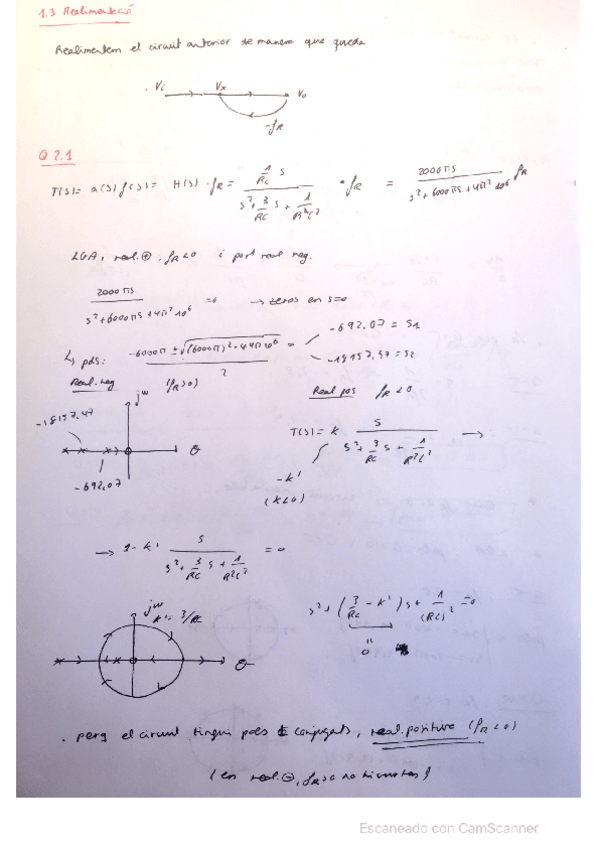 1.3 Realimentació
Realimentem el circuit anterior de manera que queda
Vi Vx Vo
-fR
Q 2.1
T(s)= a(s) f(s)= H(s) · fR = (1/RC s)/(s²+ 3/RC s + 1/R²C²) · fR = 2000πs/(s²+6000πs+4π²10⁶) fR
LGA, real.⊕. fR<0 i part real neg.
2000πs/(s²+6000πs+4π²10⁶) =0 → zeros en s=0
↳ pols: (-6000π ± √((6000π)²-4·4π²10⁶))/2 =
-692.07 = s1
-18157.47 = s2
Real. neg (fR>0)
Real pos fR<0
jw
-18157.47
σ
-692.07
T(s)= k s/(s²+ 3/RC s + 1/R²C²) →
-k'
(k<0)
→ 1- k' s/(s²+ 3/RC s + 1/R²C²) = 0
jw
k'= 3/RC
σ
s²+ (3/RC - k') s + 1/(RC)² =0
"
0
. perq el circuit tingui pols conjugats, real. positiva (fR<0)
(en real.⊖, fR>0 no